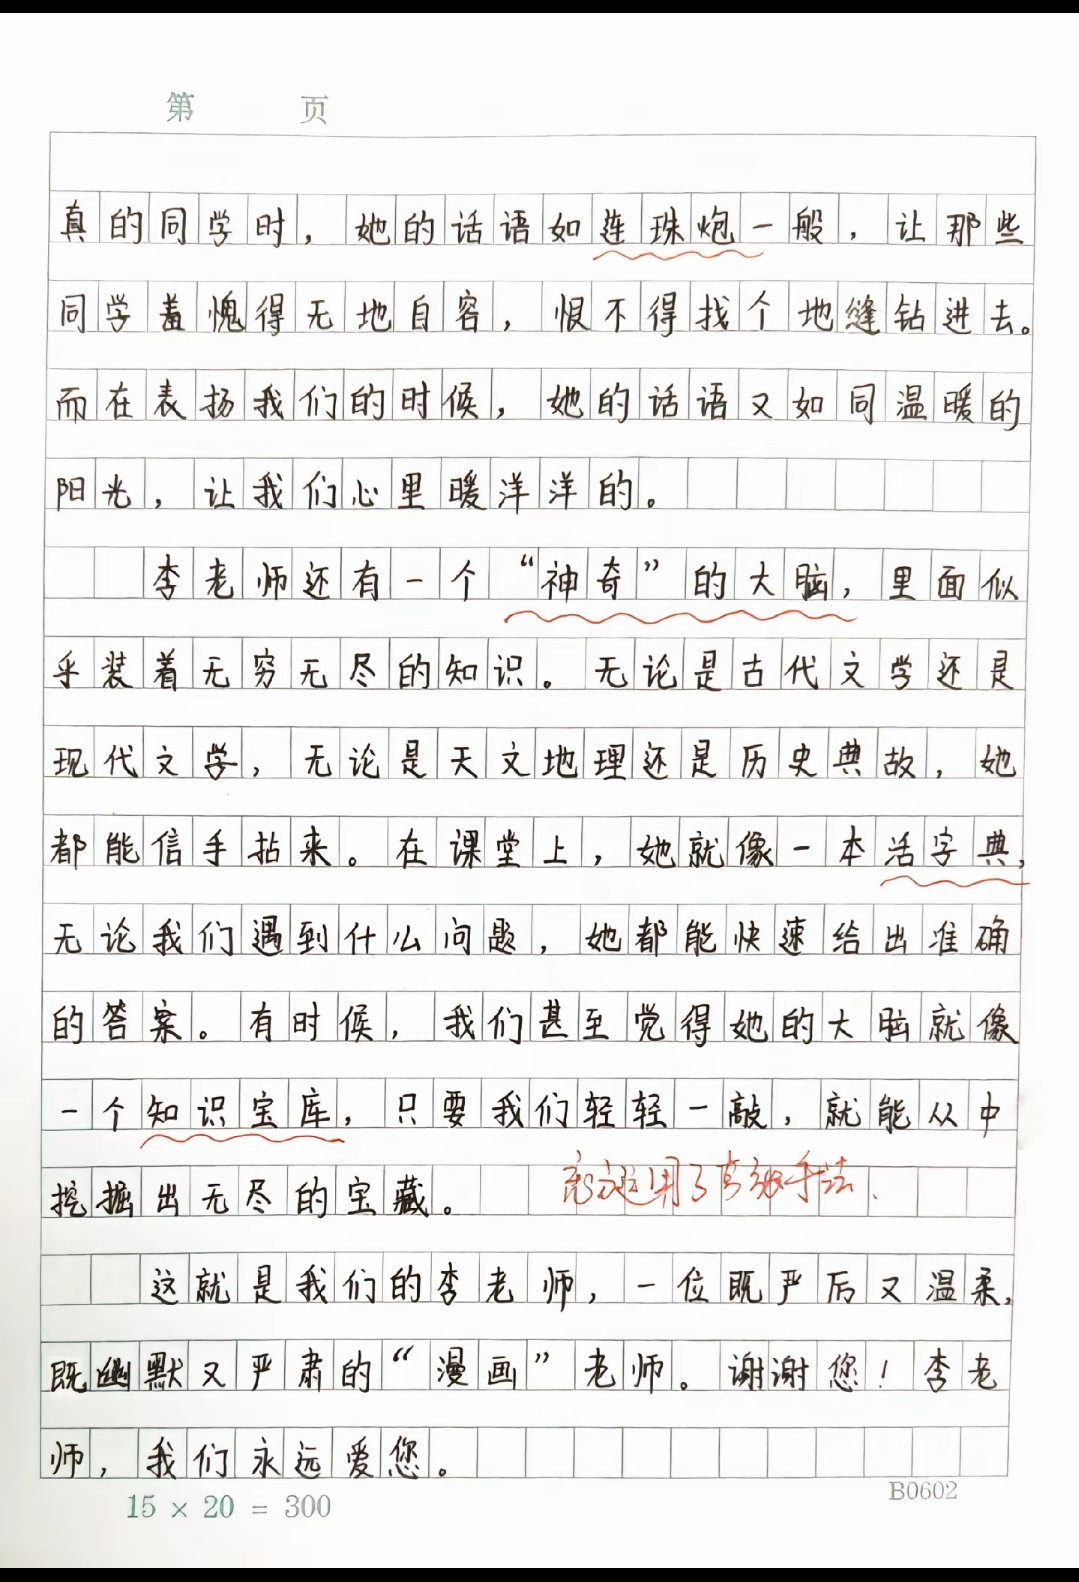 第 页
真的同学时，她的话语如连珠炮一般，让那些
同学羞愧得无地自容，恨不得找个地缝钻进去。
而在表扬我们的时候，她的话语又如同温暖的
阳光，让我们心里暖洋洋的。
李老师还有一个“神奇”的大脑，里面似
乎装着无穷无尽的知识。无论是古代文学还是
现代文学，无论是天文地理还是历史典故，她
都能信手拈来。在课堂上，她就像一本活字典，
无论我们遇到什么问题，她都能快速给出准确
的答案。有时候，我们甚至觉得她的大脑就像
一个知识宝库，只要我们轻轻一敲，就能从中
挖掘出无尽的宝藏。
用了夸张手法
这就是我们的李老师，一位既严厉又温柔，
既幽默又严肃的“漫画”老师。谢谢您！李老
师，我们永远爱您。
15 × 20 = 300
B0602